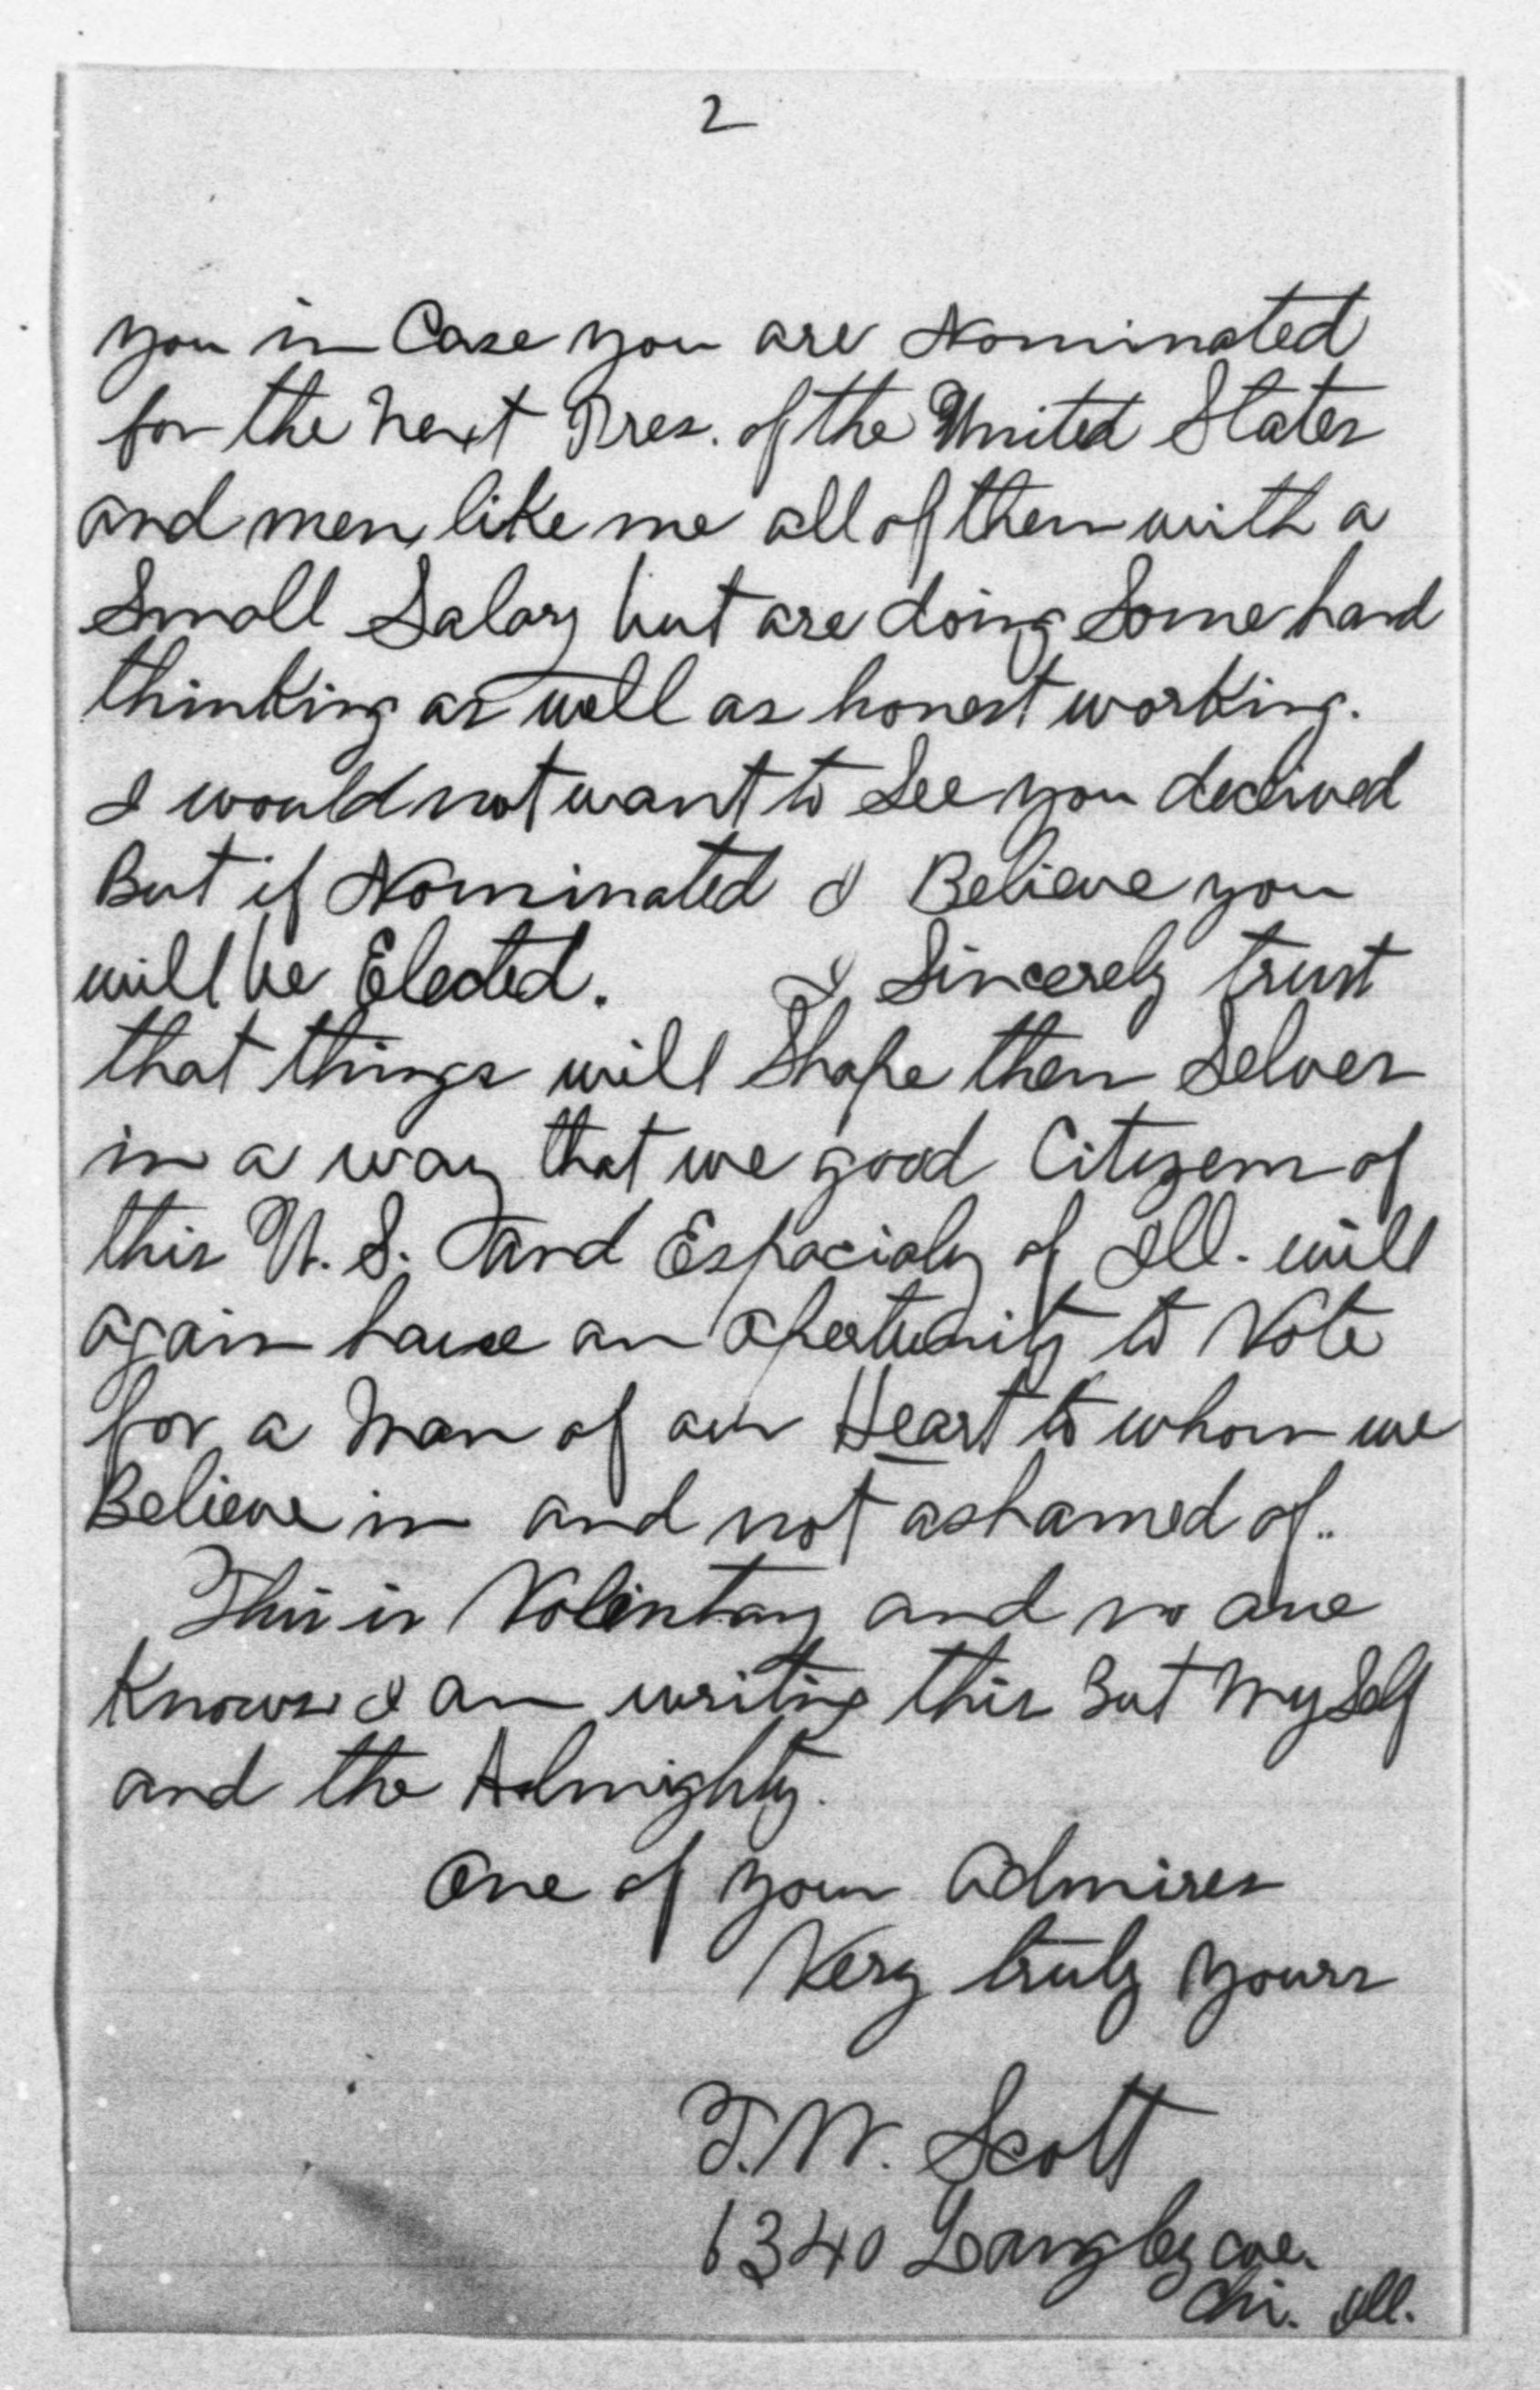 2
you in Case you are Nominated
for the next Pres. of the United States
and men like me all of them with a
Small Salary but are doing Some hard
thinking as well as honest working.
I would not want to See you decieved
But if Nominated I Believe you
will be Elected. I Sincerely trust
that things will Shape them Selves
in a way that we good Citizens of
this U. S. and Espacialy of Ill. will
again have an opertunity to Vote
for a man of our Heart to whom we
Believe in and not ashamed of..
This is Volintary and no one
Knows I am writing this But my Self
and the Almighty.
One of your admires
Very truly yours
T. W. Scott
6340 Langley ave.
Chi. Ill.